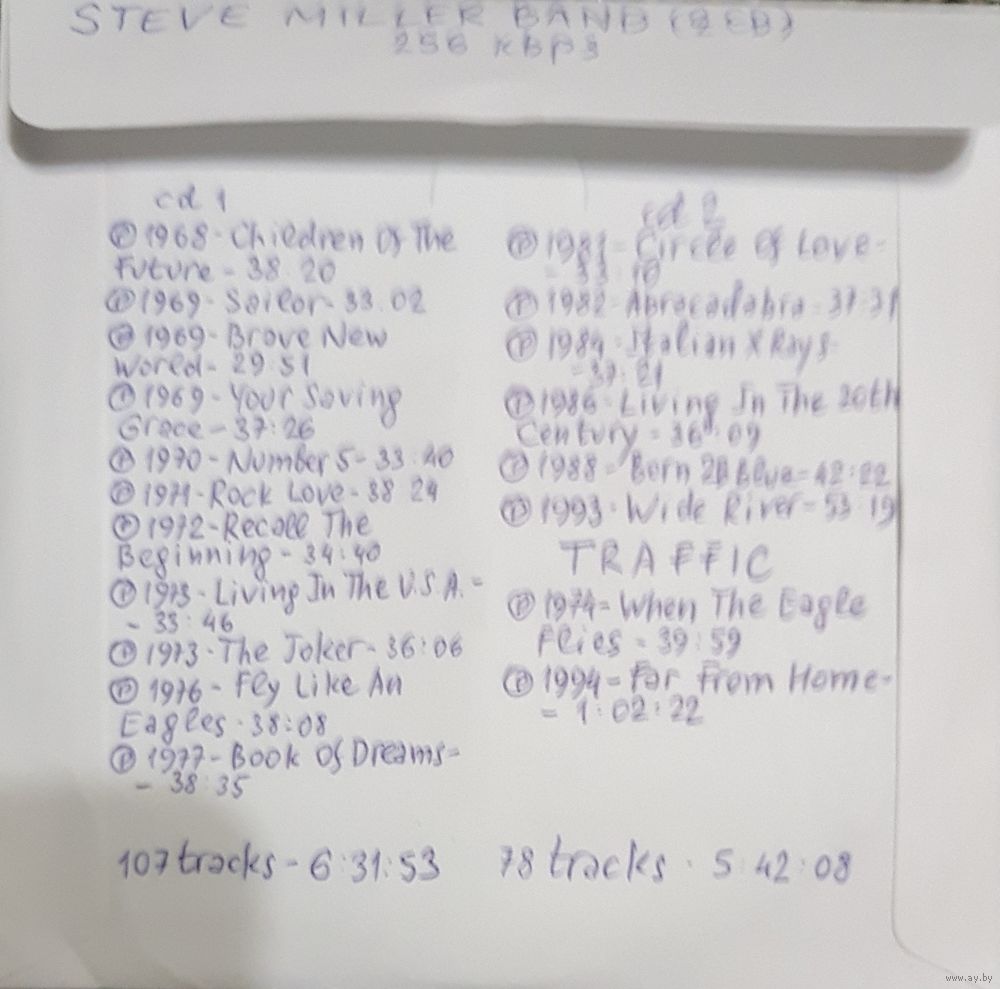 STEVE MILLER BAND (2CD)
256 kbps
cd 1
Ⓟ 1968 - Children Of The
Future - 38:20
Ⓟ 1969 - Sailor - 33:02
Ⓟ 1969 - Brove New
World - 29:51
Ⓟ 1969 - Your Saving
Grace - 37:26
Ⓟ 1970 - Number 5 - 33:40
Ⓟ 1971 - Rock Love - 38:24
Ⓟ 1972 - Recall The
Beginning - 34:40
Ⓟ 1973 - Living In The U.S.A. -
- 33:46
Ⓟ 1973 - The Joker - 36:06
Ⓟ 1976 - Fly Like An
Eagles - 38:08
Ⓟ 1977 - Book Of Dreams -
- 38:35
107 tracks - 6:31:53
cd 2
Ⓟ 1981 - Circle Of Love -
- 33:10
Ⓟ 1982 - Abracadabra - 37:31
Ⓟ 1984 - Italian X Rays -
- 37:21
Ⓟ 1986 - Living In The 20th
Century - 36:09
Ⓟ 1988 - Born 2B Blue - 42:22
Ⓟ 1993 - Wide River - 53:19
TRAFFIC
Ⓟ 1974 - When The Eagle
Flies - 39:59
Ⓟ 1994 - Far From Home -
- 1:02:22
78 tracks - 5:42:08
www.ay.by